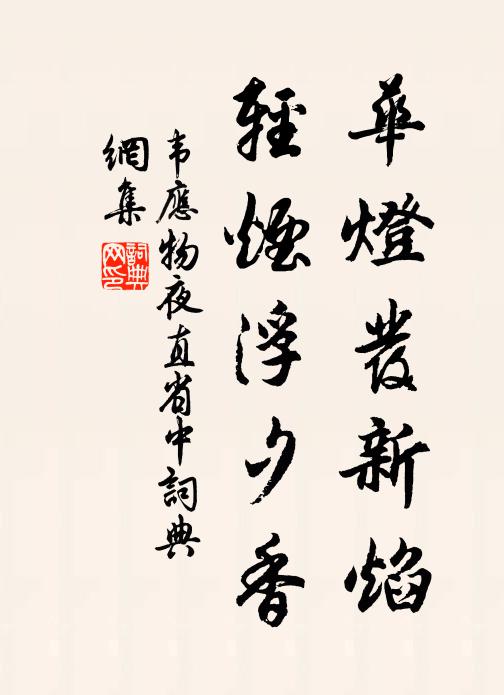 華燈發新焰
輕煙浮夕香
韦應物夜直省中詞典
網集
詞典網印